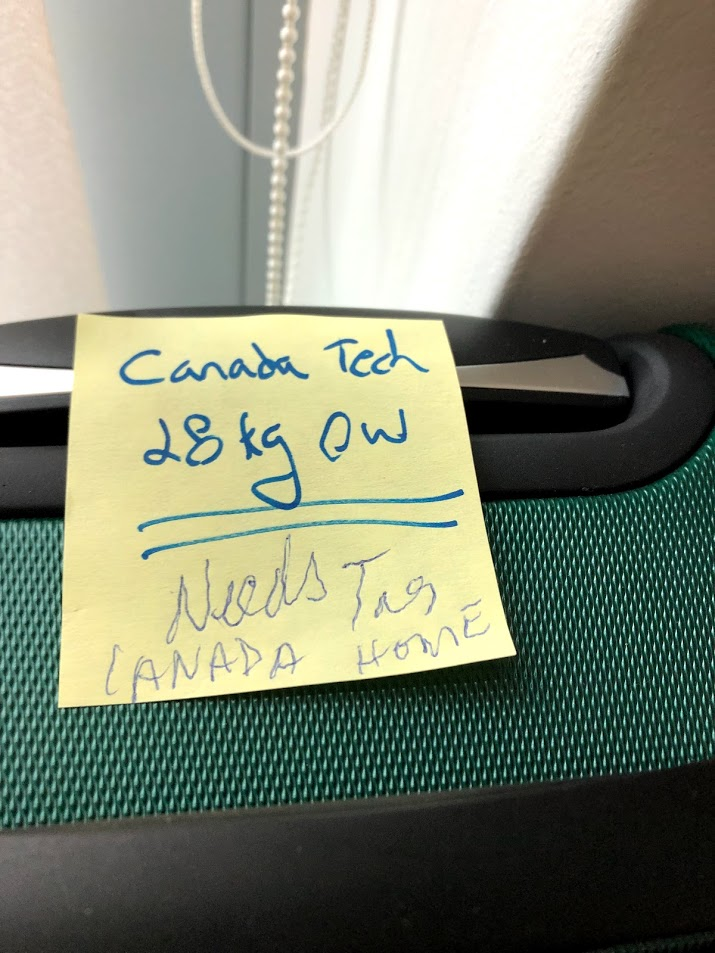 Canada Tech
28 kg OW
Needs Tag
CANADA HOME